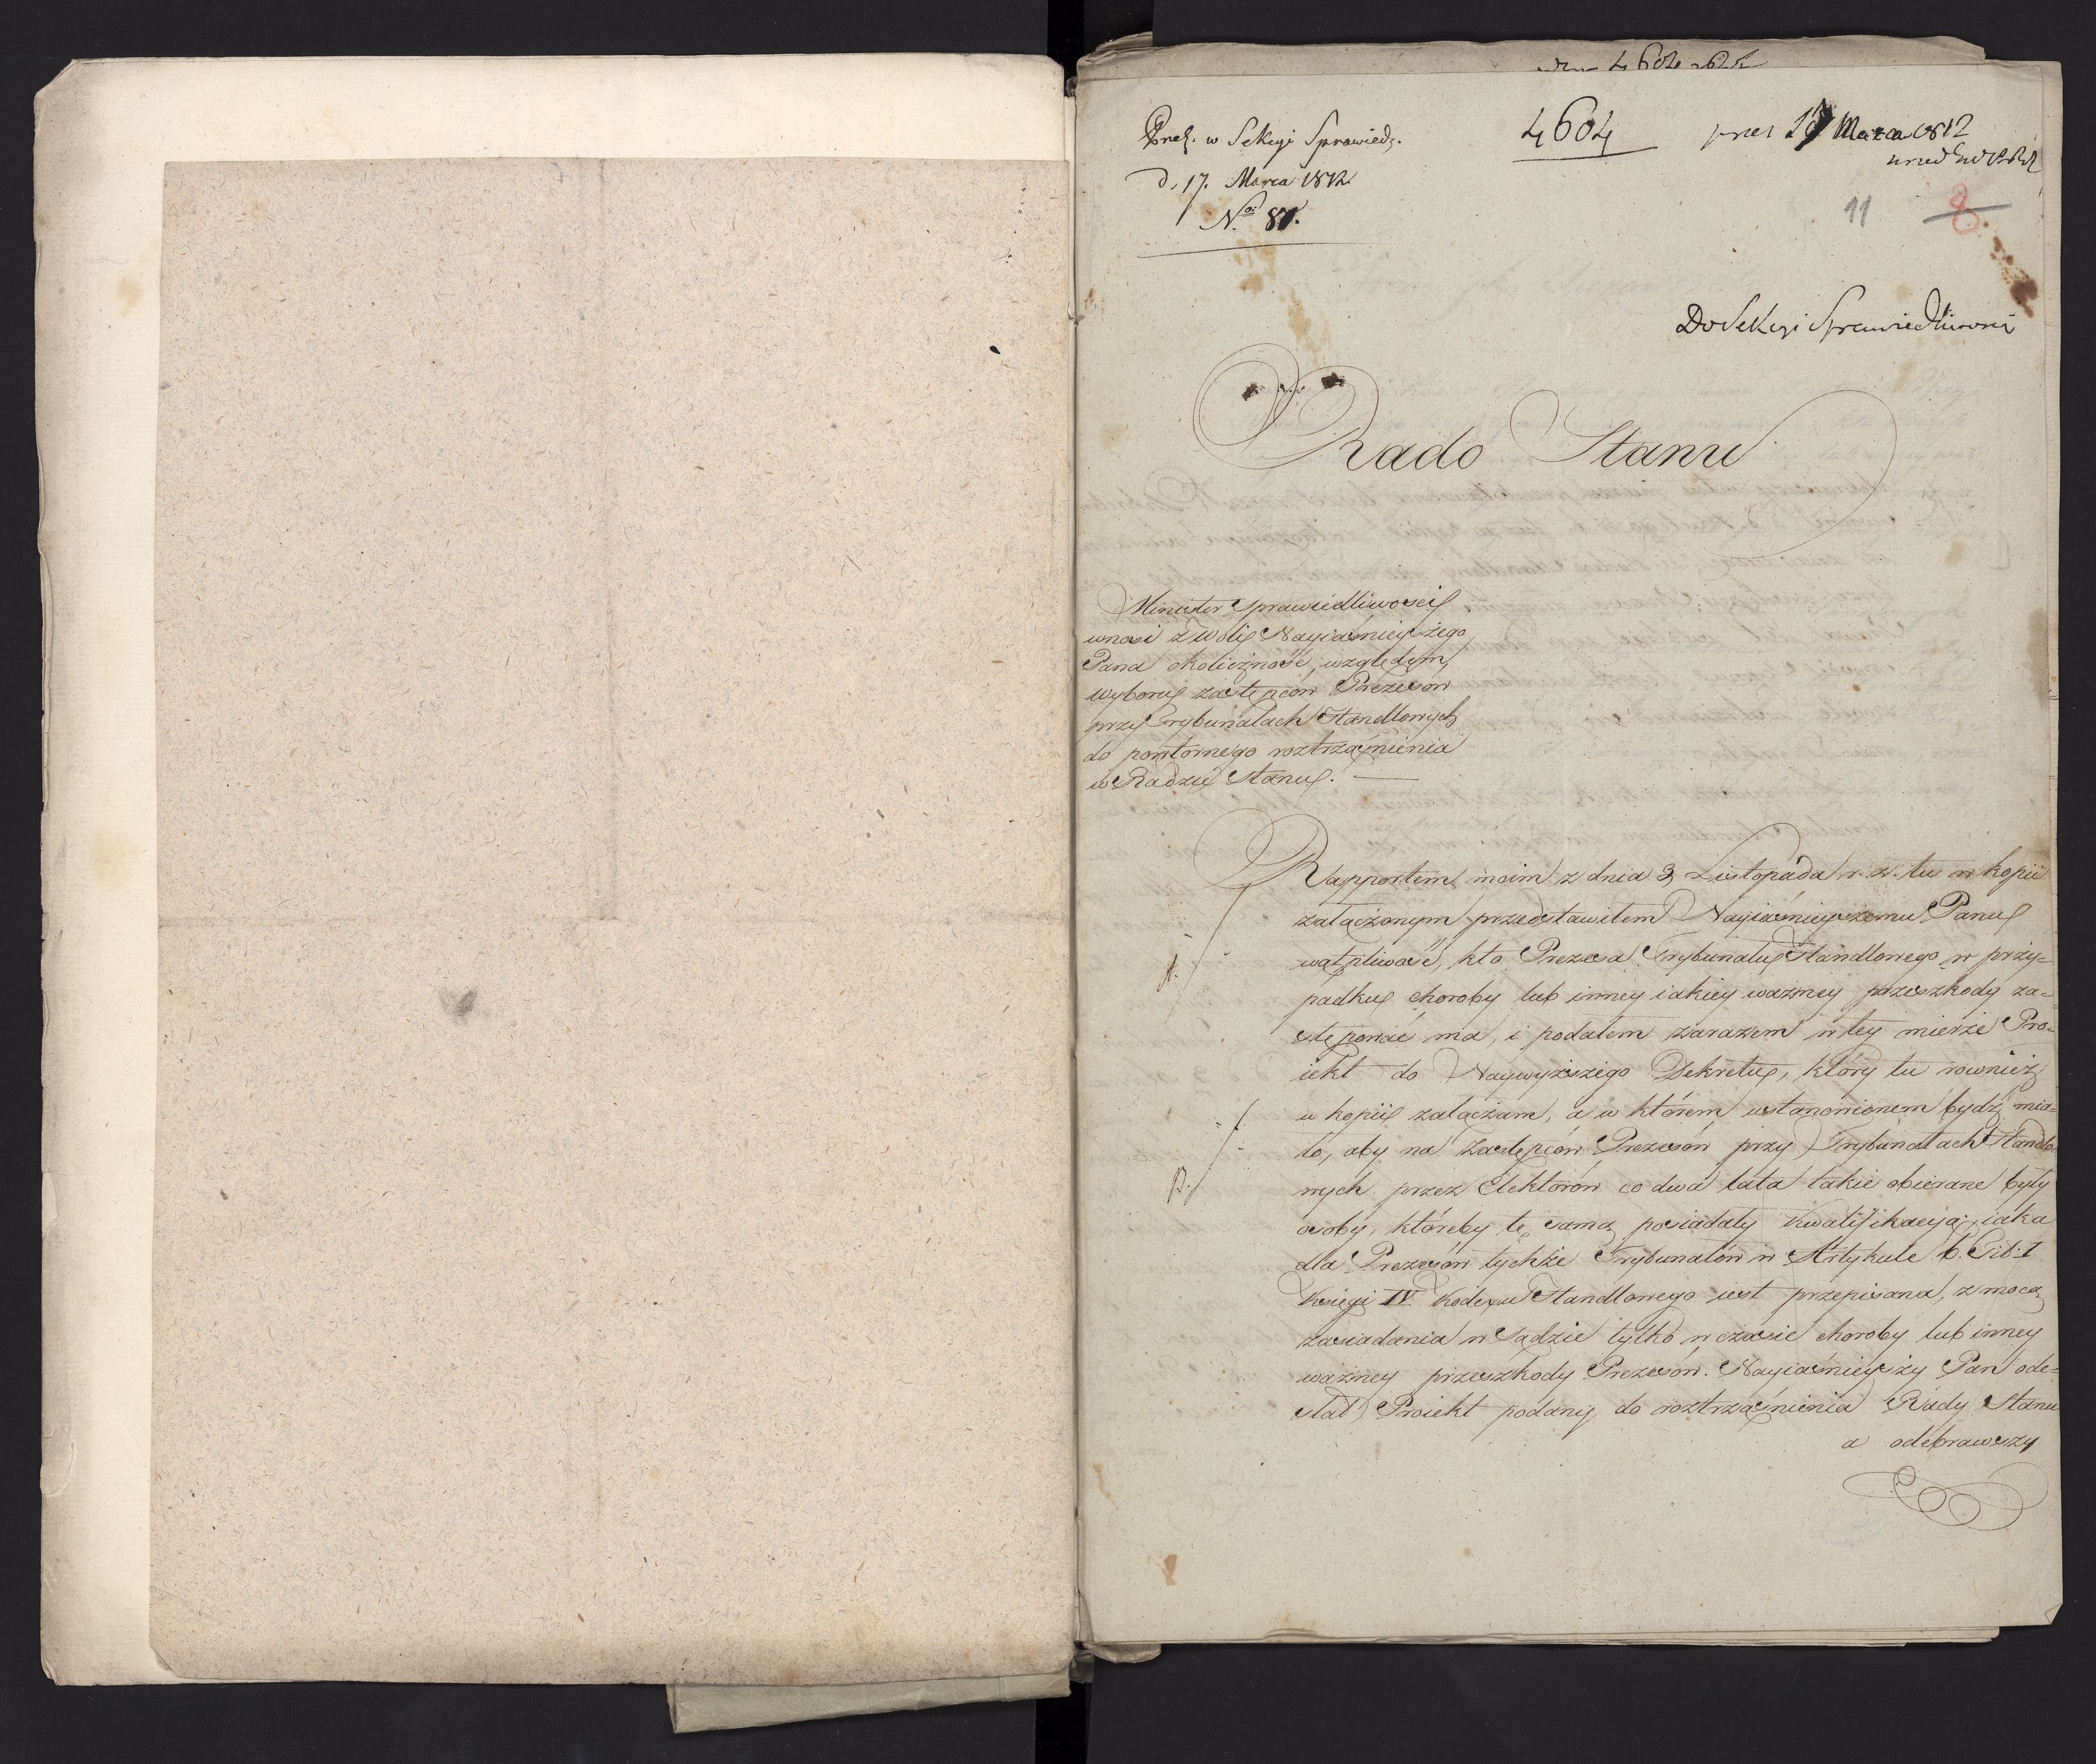 Prez. w Sekcyi Sprawiedz.
d. 17. Marca 1812.
N. 87.
4604
prez 17 Marca 1812
11 8
Do Sekcyi Sprawiedliwości
Rado Stanu
Minister Sprawiedliwości
wnosi z Woli Nayiaśnieyszego
Pana okoliczność, względem
wyboru zastępców Prezesów
przy Trybunałach Handlowych
do powtornego roztrząśnienia
w Radzie Stanu. —
Rapportem moim z dnia 3 Listopada r. z. tu w kopii
załączonym przedstawiłem Nayiaśnieyszemu Panu
wątpliwość, kto Prezesa Trybunału Handlowego w przy=
padku choroby lub inney iakiey ważney przeszkody za=
A.
stępować ma, i podałem zarazem w tey mierze Pro=
iekt do Naywyższego Dekretu, który tu rownież
w kopii załączam, a w którem ustanowionem bydź mia=
ło, aby na Zastępców Prezesów przy Trybunałach Handlo=
B.
wych przez Elektorów co dwa lata takie obierane były
osoby, któreby tę samą posiadały kwalifikacyą, iaka
dla Prezesów tychże Trybunałów w Artykule 6. Tit: I
Księgi IV. Kodexu Handlowego iest przepisana, z mocą
zasiadania w Sądzie tylko w czasie choroby lub inney
ważney przeszkody Prezesów. Nayiaśnieyszy Pan ode=
słał Proiekt podany do roztrząśnienia Rady Stanu
a odebrawszy